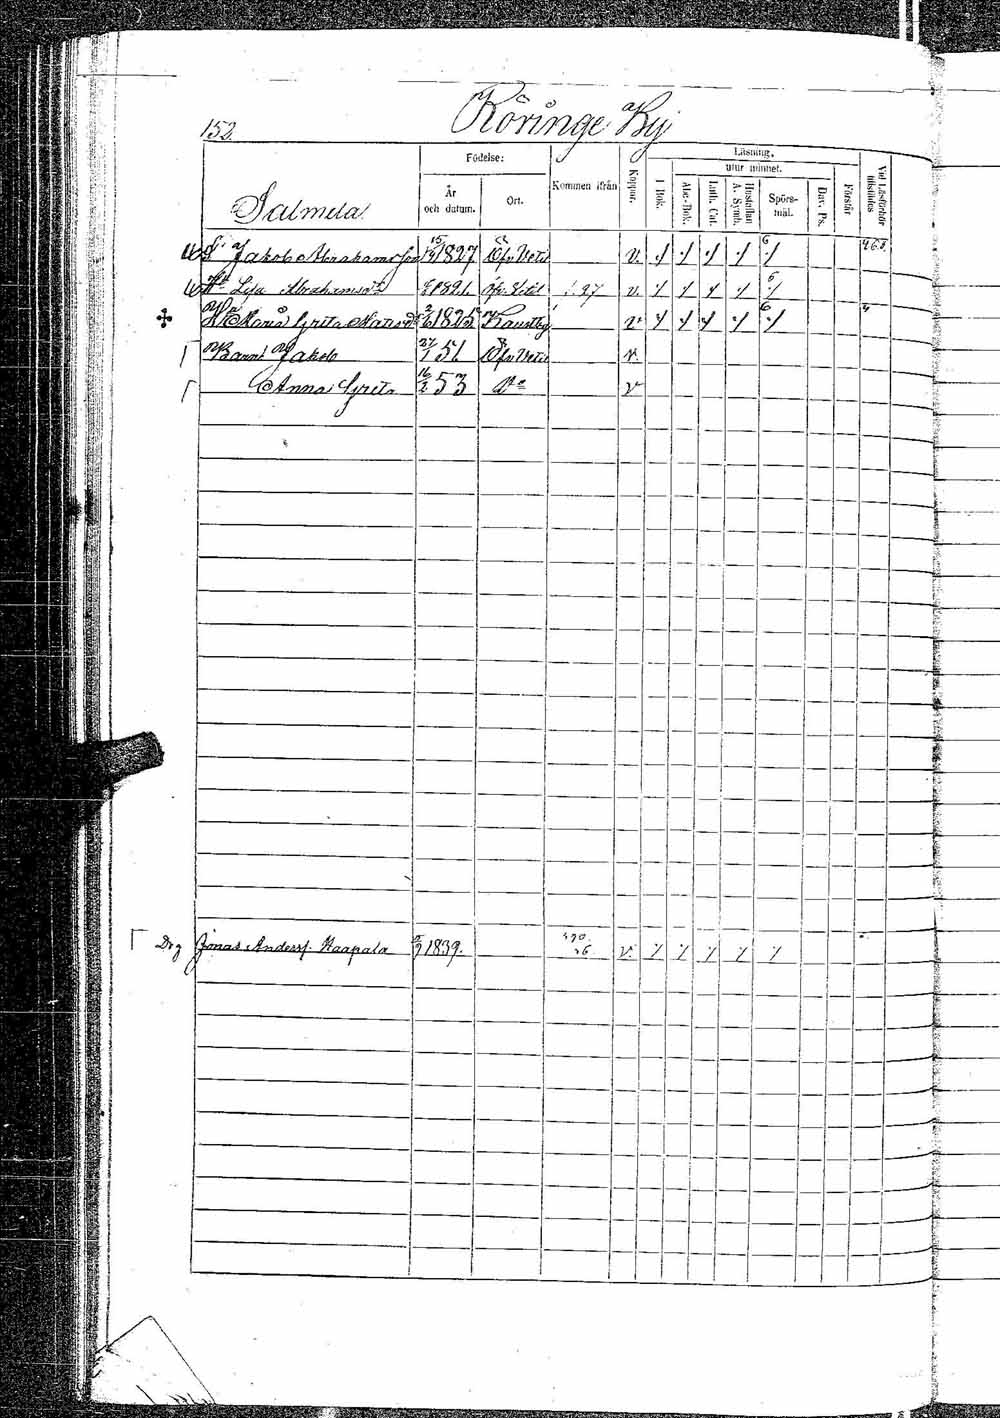 152. Köringe By
Salmela
Födelse:
År och datum.
Ort.
Kommen ifrån
Koppor.
Läsning,
I Bok.
utur minnet.
Abc-Bok.
Luth. Cat.
Hustaflan A. Symb.
Spörsmål.
Dav. Ps.
Förstår
Vid Läsförhör tillstädes
Jakob Abrahamsson 15 1827 Öfv. Vetil v. 6
Lisa Abrahamsdr 1821. Öfv. Vetil 27 v. 6
Maria Greta Matsdr Kaustby v. 6
Barn: Jakob 27/1 51. Öfv. Vetil v.
Anna Greta 16/2 53 v
Drg Jonas Anderss. Haapala 1839. v.